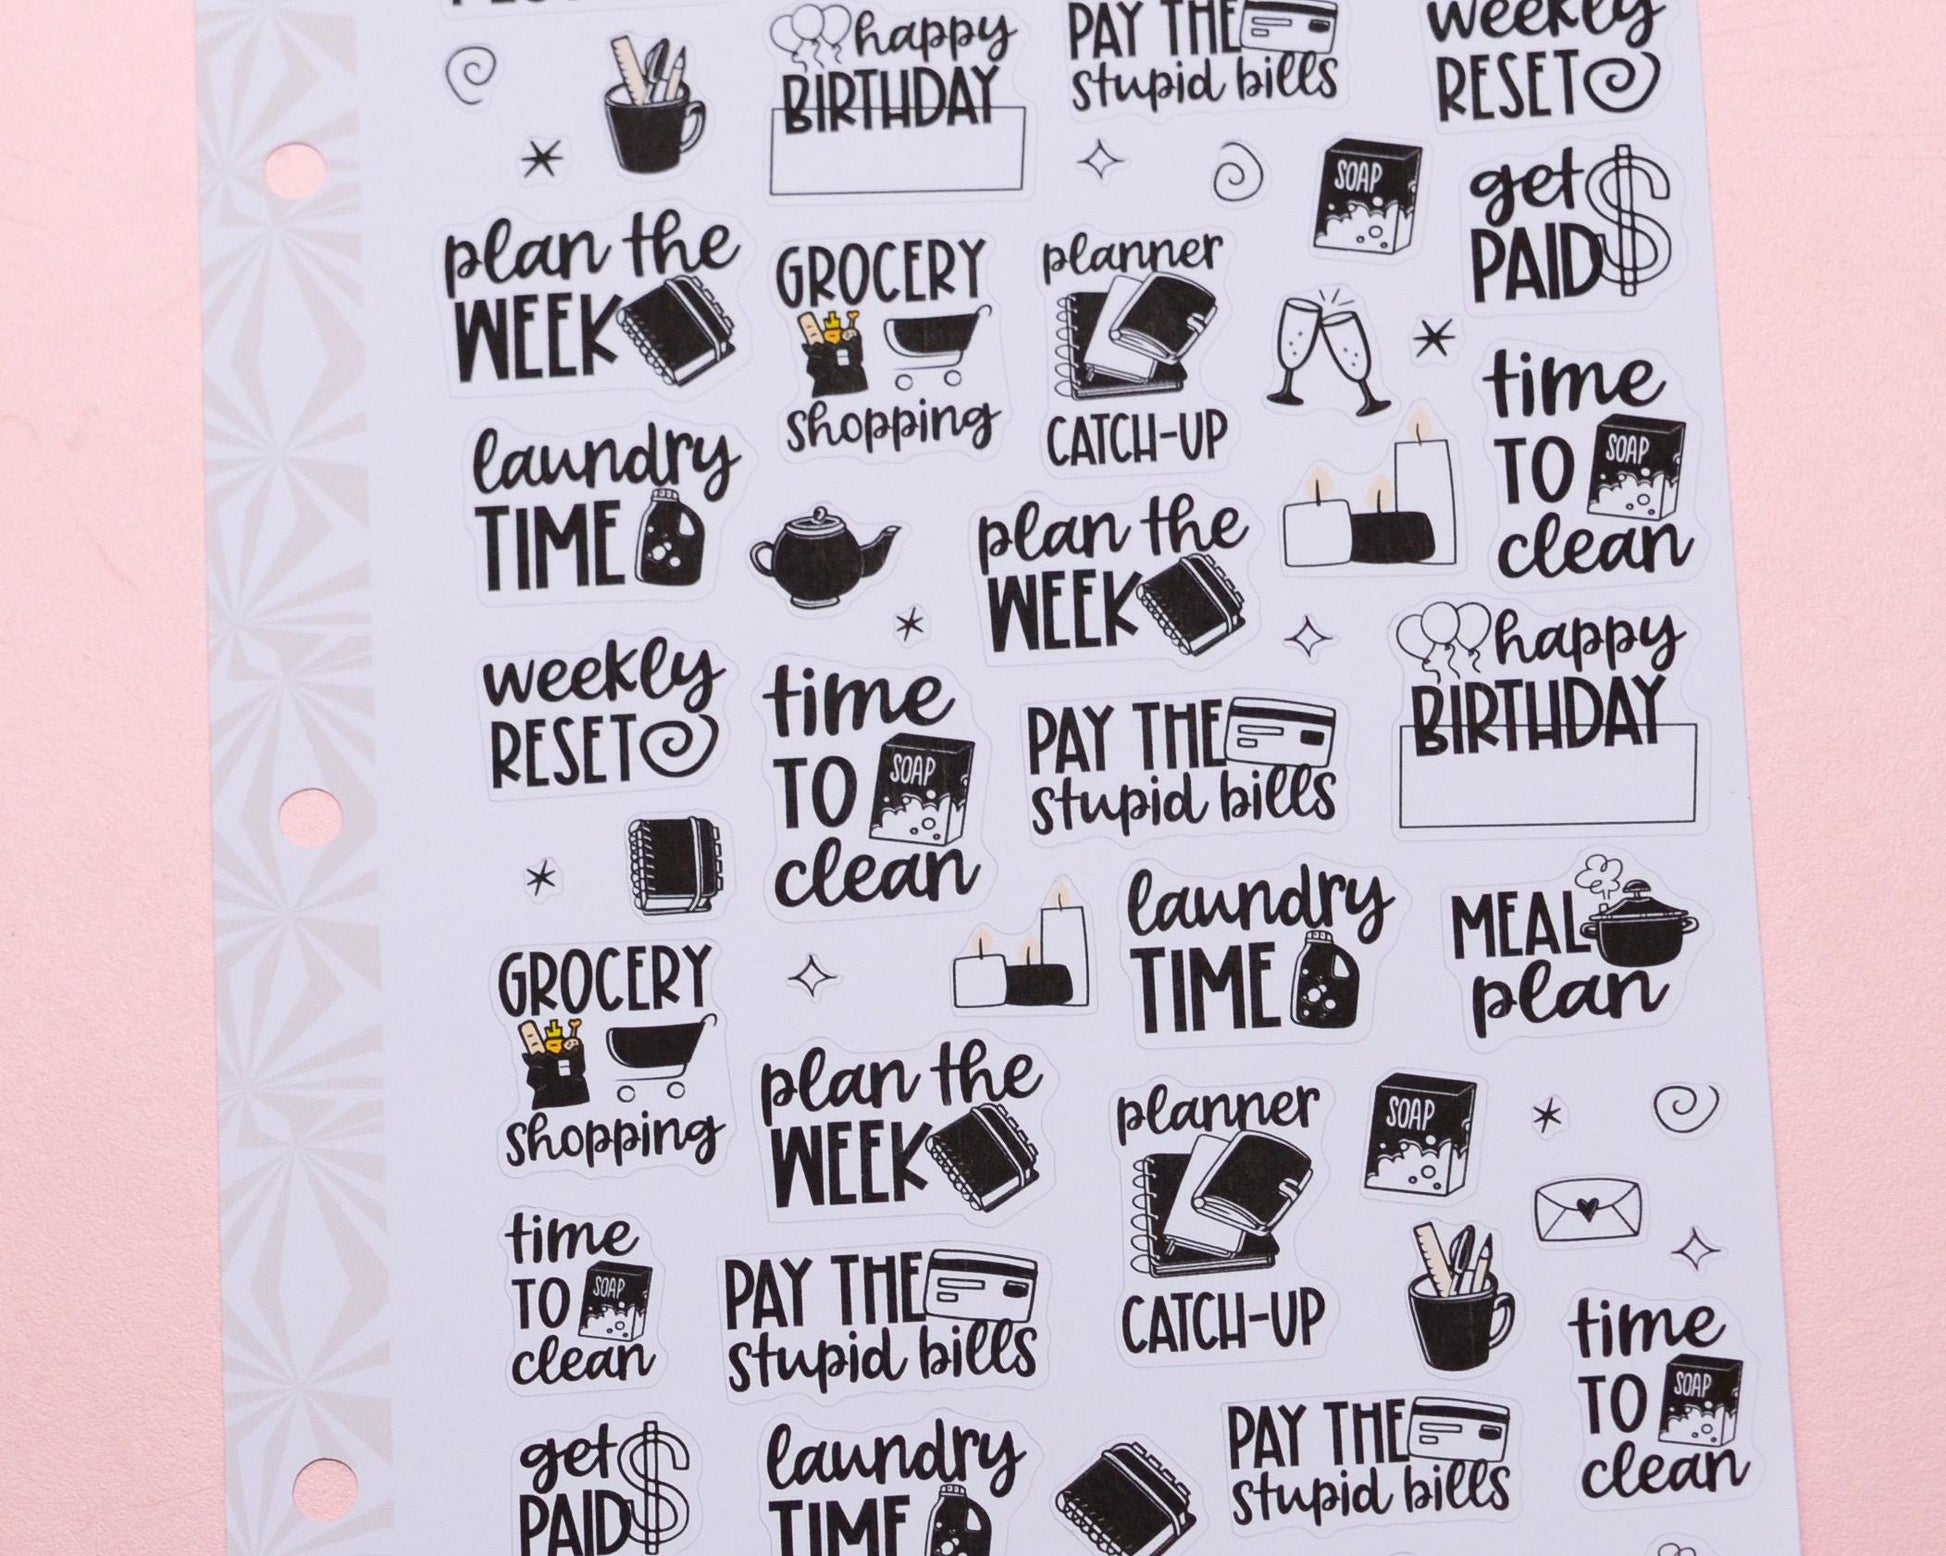 happy
BIRTHDAY
PAY THE
stupid bills
weekly
RESET
SOAP
get
PAID$
plan the
WEEK
GROCERY
shopping
planner
CATCH-UP
time
TO
SOAP
clean
laundry
TIME
plan the
WEEK
happy
BIRTHDAY
weekly
RESET
time
TO
SOAP
clean
PAY THE
stupid bills
laundry
TIME
MEAL
plan
GROCERY
shopping
plan the
WEEK
planner
CATCH-UP
SOAP
time
TO
SOAP
clean
PAY THE
stupid bills
time
TO
SOAP
clean
get
PAID$
laundry
TIME
PAY THE
stupid bills